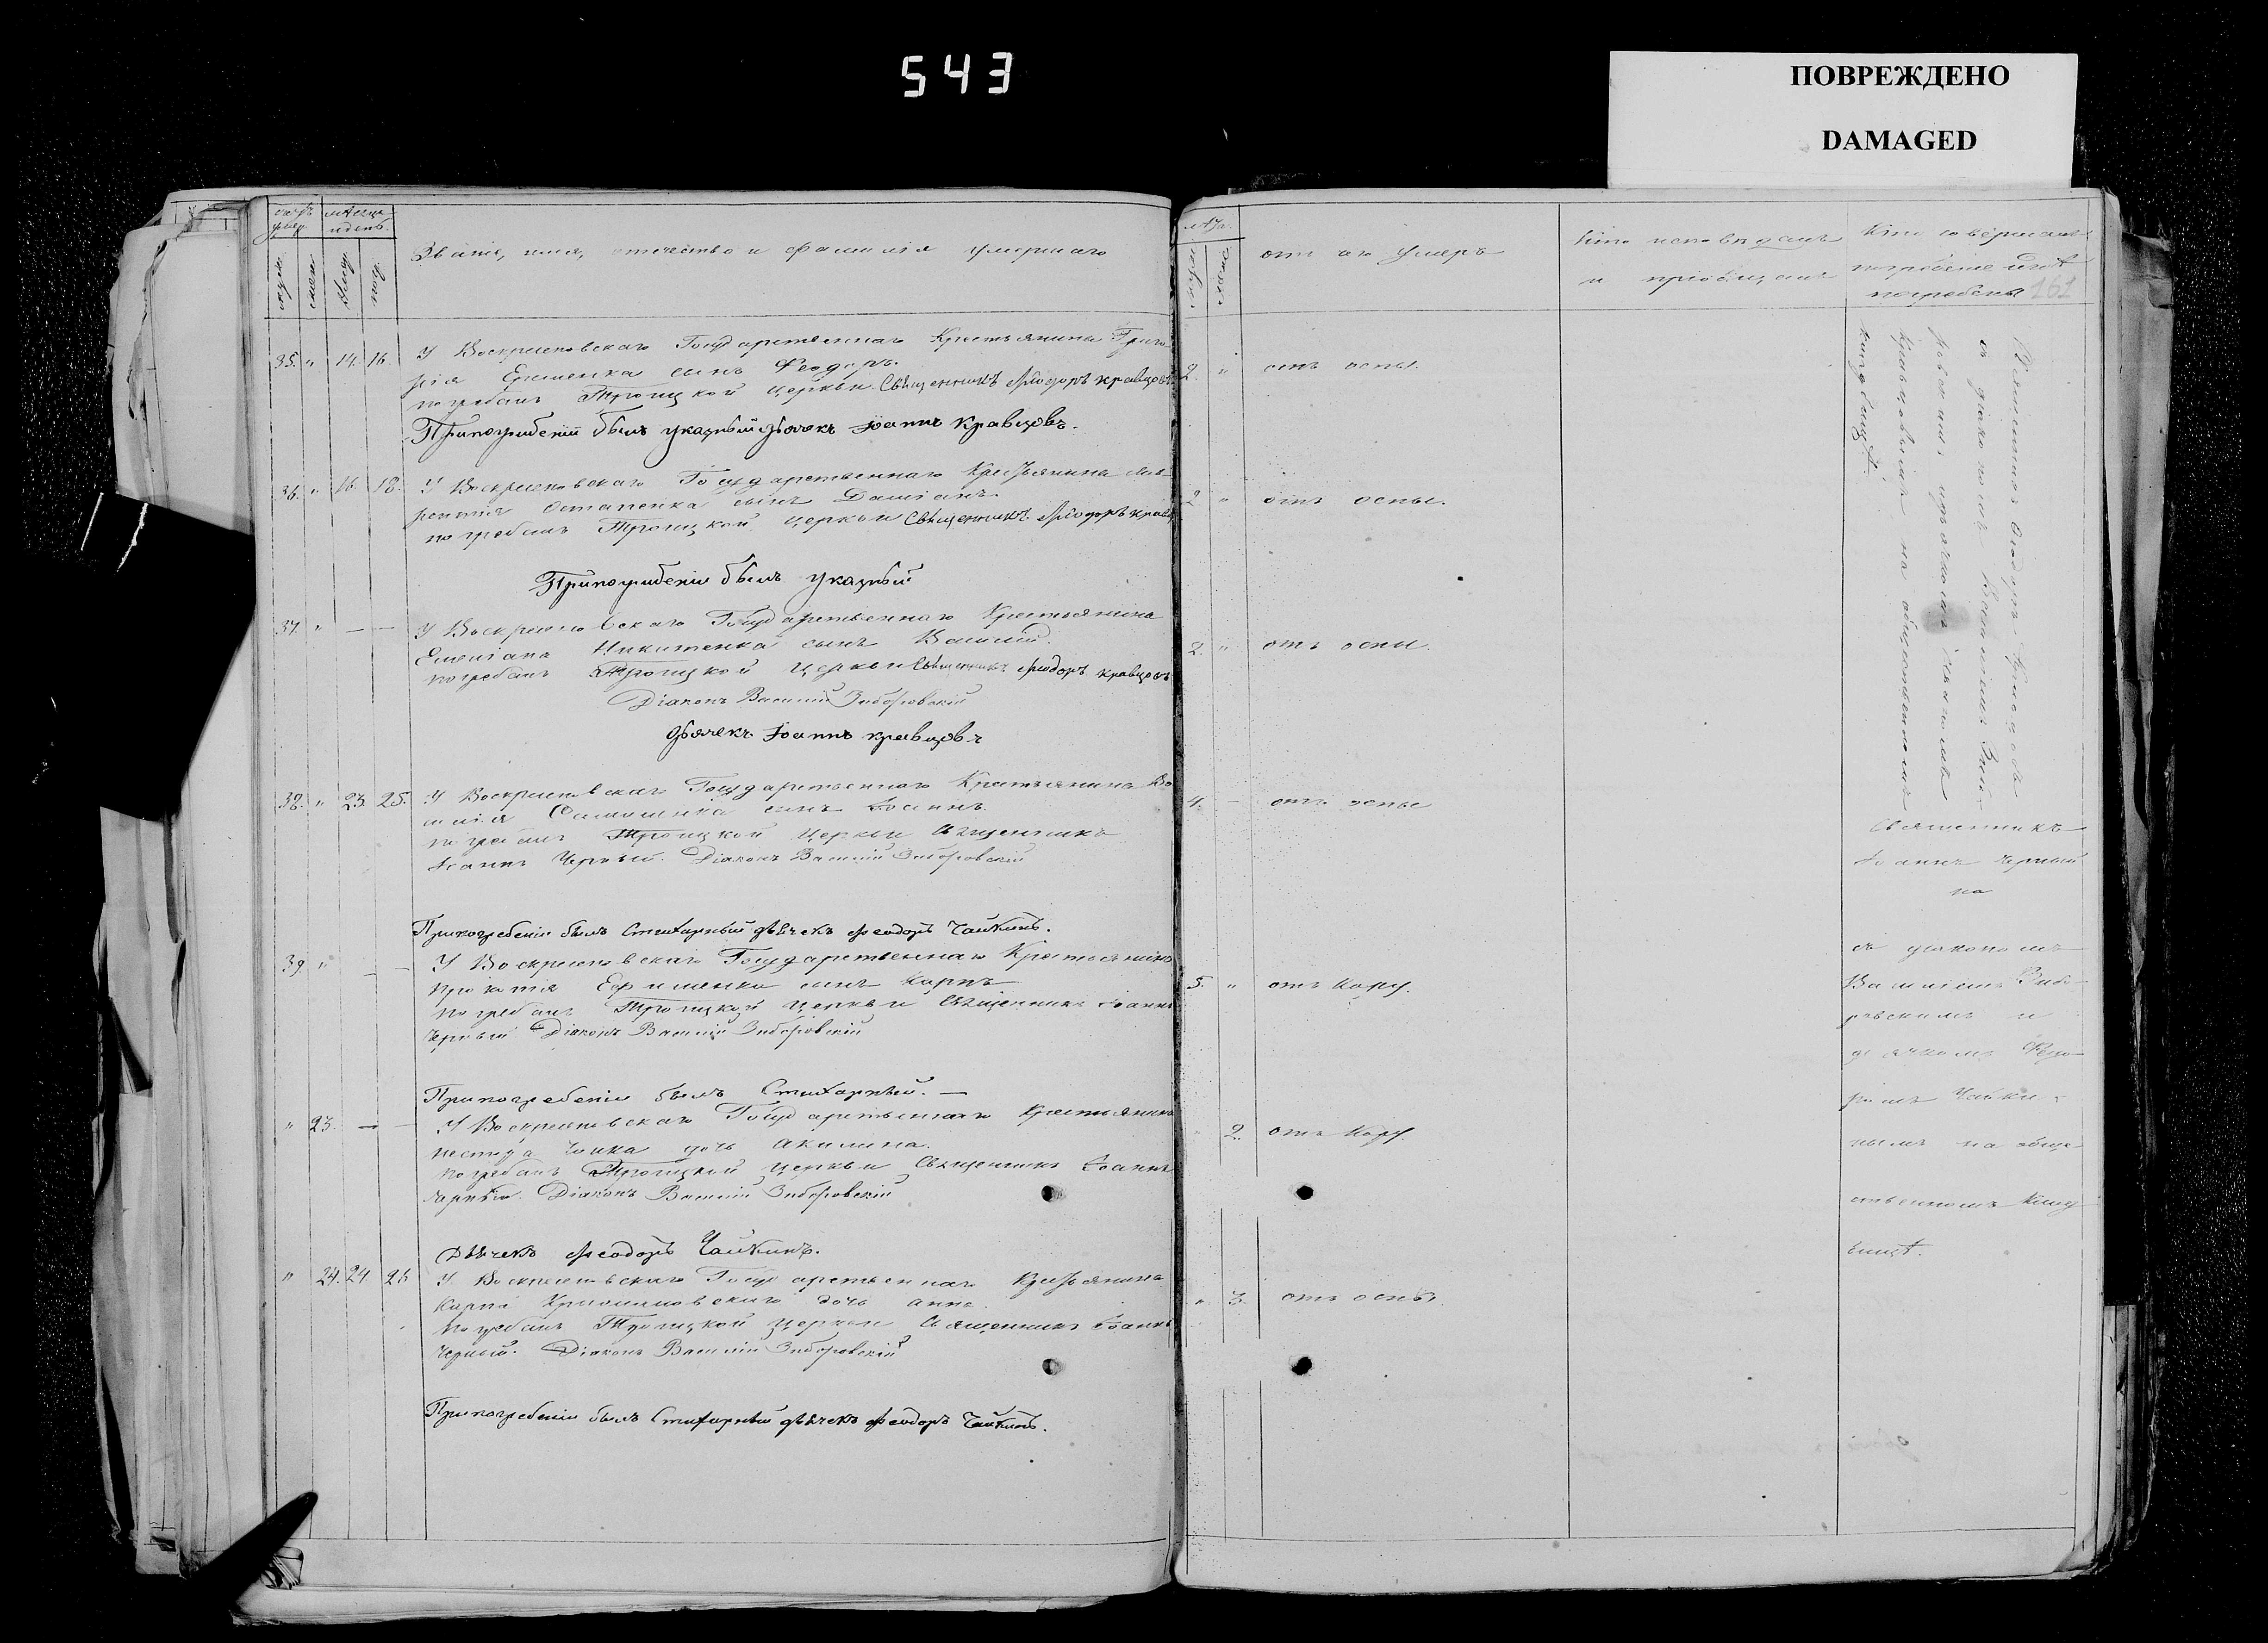 543
ПОВРЕЖДЕНО
DAMAGED
Званіе, имя, отчество и фамилія умершаго
35. " 14. 16. У Воскресеновскаго Государственнаго Крестьянина Григо
рія Ефименка сынъ Феодоръ.
погребалъ Троицкой церкви Священникъ Феодоръ Кравцовъ
При погрибеніи былъ указный дьячекъ Іоаннъ Кравцовъ.
36. " 16. 18. У Воскресеновскаго Государственнаго Крестьянина Лав
рентія Остапенка сынъ Даміанъ.
погребалъ Троицкой церкви Священникъ Феодоръ Кравц
При погрибеніи былъ указный
37. " — — У Воскресеновскаго Государственнаго Крестьянина
Емиліана Никитенка сынъ Василій.
погребалъ Троицкой Церкви Священникъ Феодоръ Кравцовъ
Діаконъ Василій Зиборовскій
Дьячекъ Іоаннъ Кравцовъ
38. " 23. 25. У Воскресеновскаго Государственнаго Крестьянина Ва
силія сынъ Іоаннъ.
погребалъ Троицкой Церкви Священникъ
Іоаннъ Черный. Діаконъ Василій Зиборовскій
При погребеніи былъ Стихарный дьячекъ Феодоръ Чайкинъ.
39 " — — У Воскресеновскаго Государственнаго Крестьянина
Ефименка сынъ Карпъ
погребалъ Троицкой Церкви Священникъ Іоаннъ
Черный Діаконъ Василій Зиборовскій
При погребеніи былъ Стихарный. —
" 23. — — У Воскресеновскаго Государственнаго Крестьянина
дочь Акилина.
погребалъ Троицкой Церкви Священникъ Іоаннъ
Черный. Діаконъ Василій Зиборовскій
Дьячекъ Феодоръ Чайкинъ.
" 24. 24. 26 У Воскресеновскаго Государственнаго Крестьянина
Карпа дочь Анна.
погребалъ Троицкой Церкви Священникъ Іоаннъ
Черный. Діаконъ Василій Зиборовскій
При погребеніи былъ Стихарный дьячекъ Феодоръ Чайкинъ.
лѣта
отъ чего умеръ
Кто исповѣдалъ
и пріобщалъ
Кто совершалъ
погребеніе и гдѣ
погребены 161
2. " отъ оспы.
2 " отъ оспы.
2. " отъ оспы.
4. отъ оспы
5. " отъ Кору.
" 2. отъ Кору.
" 3. отъ оспы.
Священникъ Феодоръ Кравцовъ
съ діакономъ Василіемъ Зибо-
ровскимъ и дьячкомъ Іоанномъ
Кравцовымъ на общественномъ
кладбищѣ.
Священникъ
Іоаннъ Черный
на
съ діакономъ
Василіемъ Зибо-
ровскимъ и
дьячкомъ Фео-
ромъ Чайки-
нымъ на обще-
ственномъ Клад-
бищѣ.